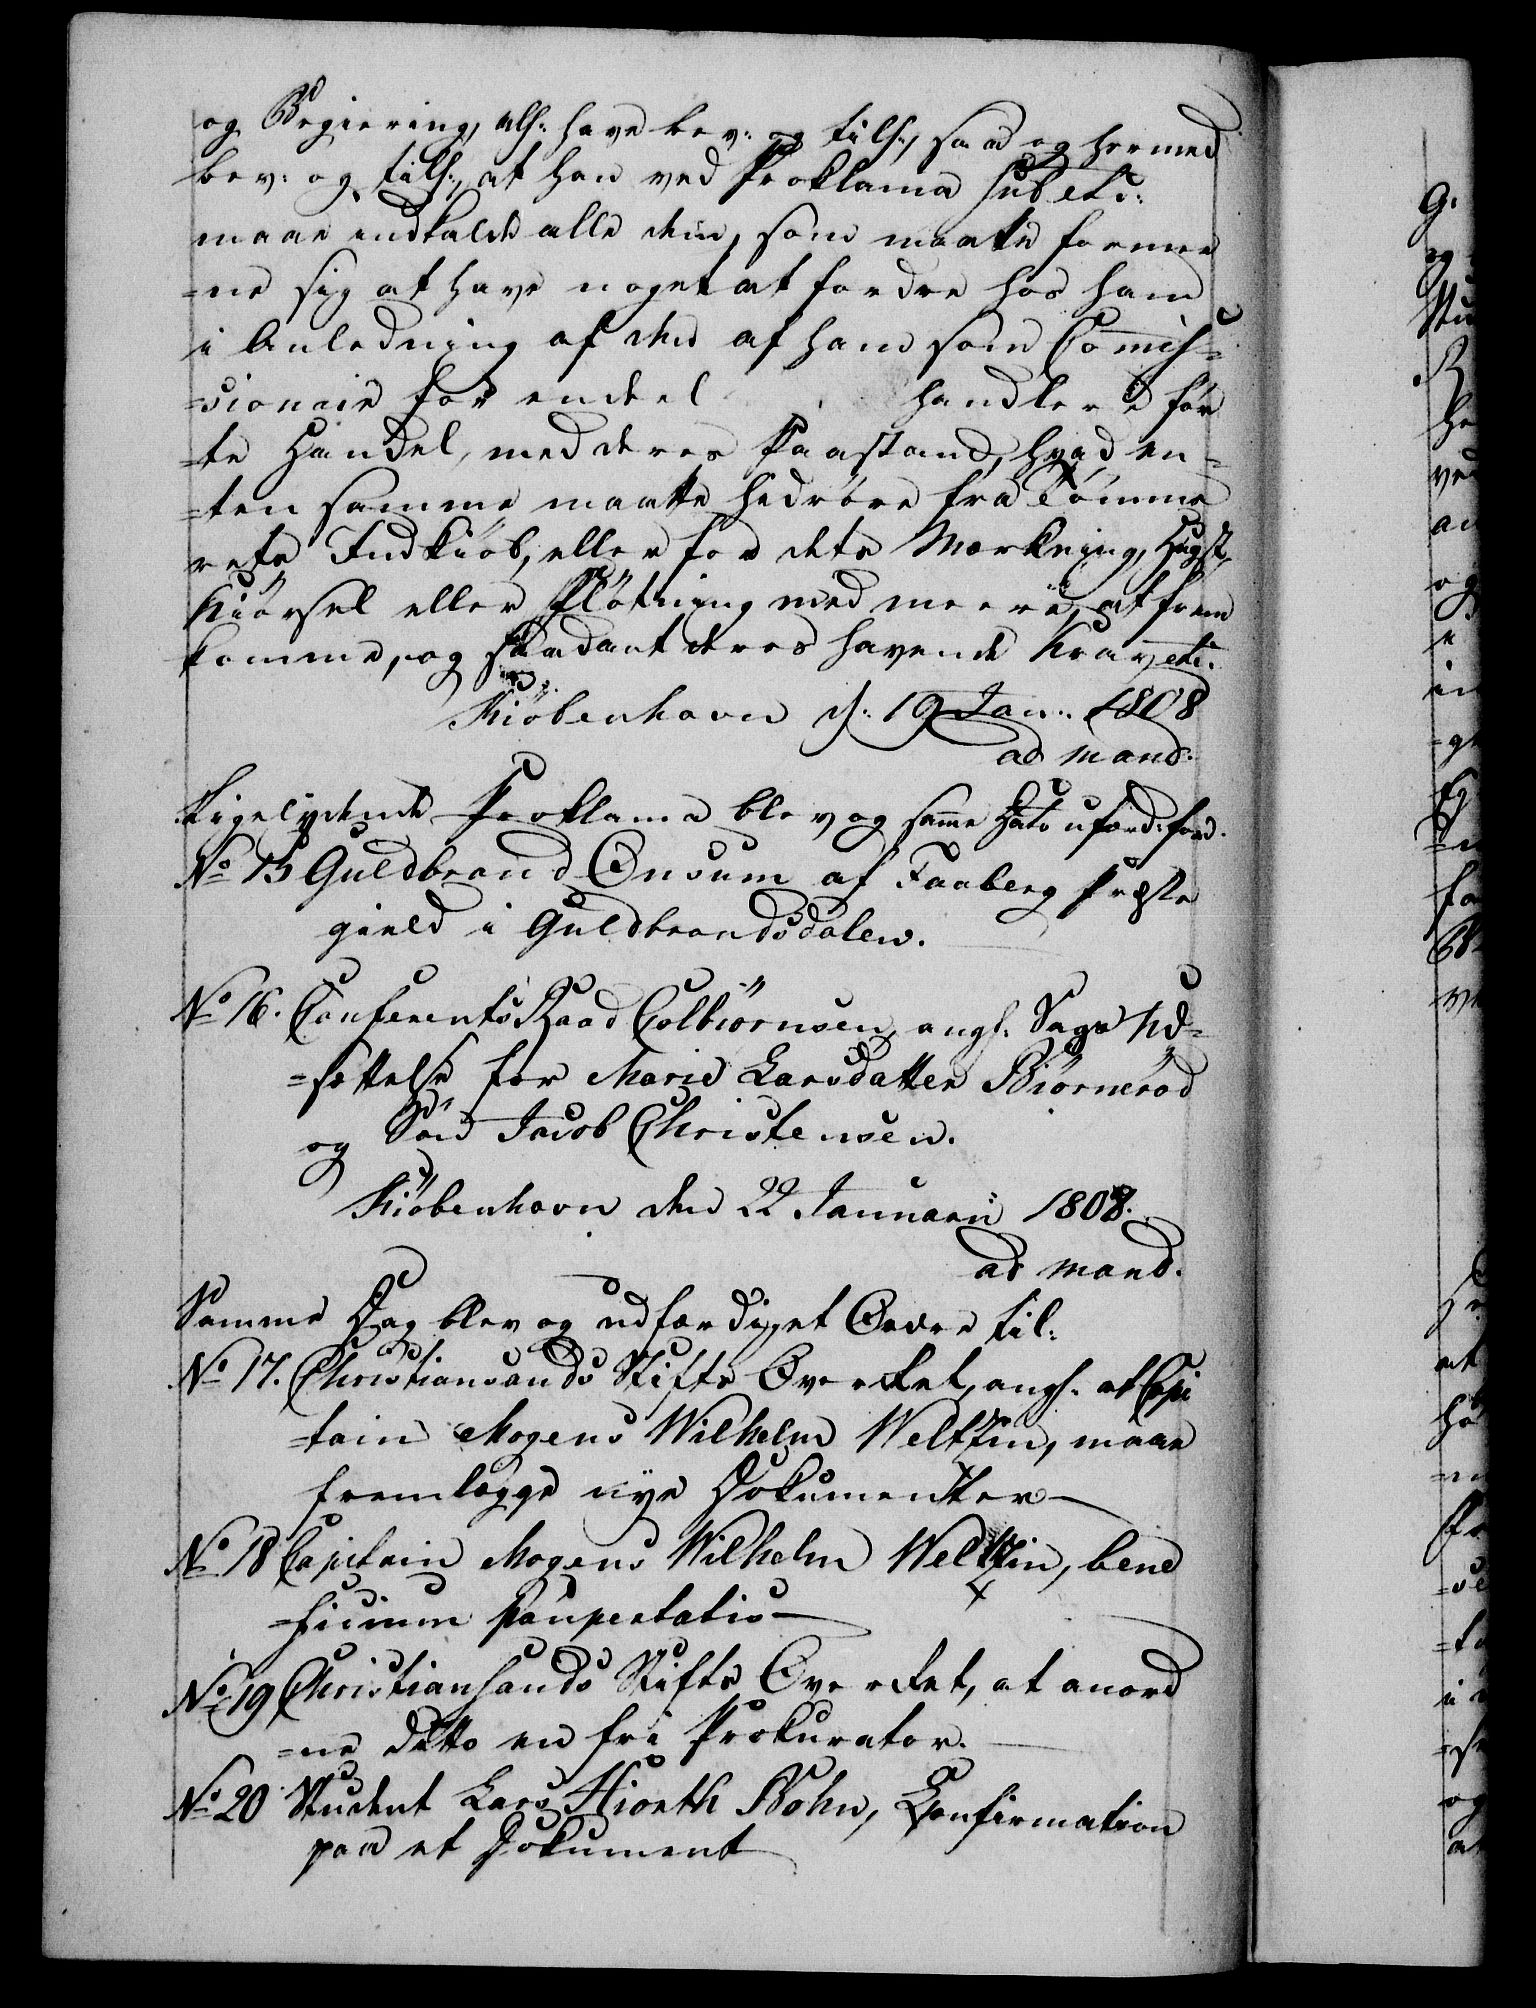 og Regiering, alf: have bev: og tilf:, saa og hermed
bev: og tilf:, at han ved Proklama sub etc:
maae indkalde alle dem, som maatte formee
=ne sig at have noget at fordre hos ham
i Anledning af den af ham som Com̄is=
=sionair for endeel handlere før
=te Handel, med deres Paastand, hvad en=
=ten samme maatte hidröre fra Tömme
rets Indkiöb, eller for dets Mærkning, Hugst,
Kiörsel eller Flötning med meere, at frem
komme, og saadant deres havende Krav etc.
Kiöbenhavn d: 19 Jan: 1808
ad mand:
Ligelydende Proklama blev og sam̄e Dato udfærd: for
No 15 Guldbrand Onsum af Faaberg Præste
gield i Guldbrandsdalen.
No 16. ConferentsRaad Colbiörnsen, angf. Sags Ud=
=sættelse for Marie Larsdatter Biörneröd
og Sön Jacob Christensen.
Kiöbenhavn den 22 Januarii 1808.
ad mand.
Samme Dag blev og udfærdiget Ordre til:
No 17. Christiansands Stifts Overret, angf. at Capi
=tain Mogens Wilhelm Weltzin, maae
fremlægge nye Dokumenter
No 18 Capitain Mogens Wilhelm Weltzin, bene
=ficium paupertatis
No 19 Christiansands Stifts Overret, at anord
=ne ditto en fri Prokurator.
No 20 Student Lars Hiorth Bohn, Confirmation
paa et Dokument